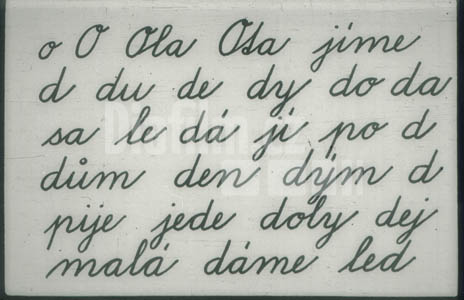 o O Ola Ota jíme
d du de dy do da
sa le dá jí po d
dům den dým d
pije jede doly dej
malá dáme led